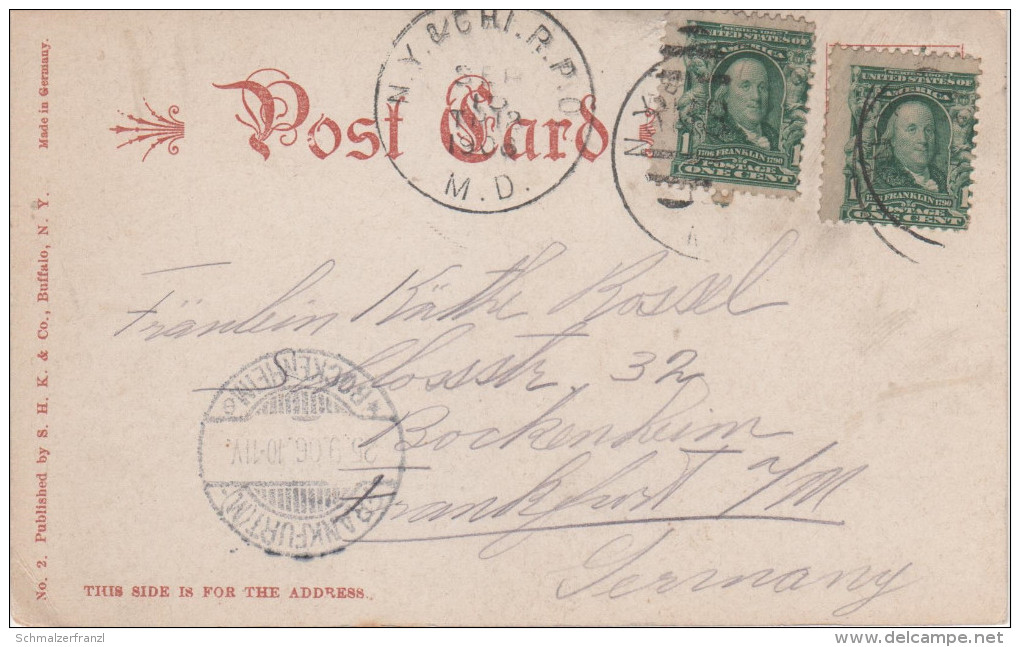 Made in Germany.
No. 2. Published by S. H. K. & Co., Buffalo, N. Y.
Post Card
N.Y. & CHI. R.P.O
SEP
1906
M.D.
SERIES 1902
UNITED STATES OF
AMERICA
1706 FRANKLIN 1790
1 POSTAGE 1
ONE CENT
SERIES 1902
UNITED STATES OF
AMERICA
1706 FRANKLIN 1790
1 POSTAGE 1
ONE CENT
N.Y.
Fräulein Käthe Rossel
Schlossstr. 32
Bockenheim
Frankfurt a/M
Germany
FRANKFURT (M)
25.9.06.10-11V.
* BOCKENHEIM e
THIS SIDE IS FOR THE ADDRESS.
Schmalzerfranzl
http://www.delcampe.net